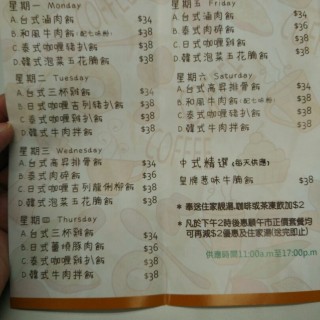 星期一 Monday
A.台式滷肉飯 $34
B.和風牛肉飯(配七味粉) $38
C.泰式咖喱豬扒飯 $38
D.韓式泡菜五花腩飯 $38
星期二 Tuesday
A.台式三杯雞飯 $34
B.日式咖喱吉列豬扒飯 $38
C.泰式咖喱雞扒飯 $38
D.韓式牛肉拌飯 $38
星期三 Wednesday
A.台式高昇排骨飯 $34
B.泰式肉碎飯 $36
C.日式咖喱吉列龍俐柳飯 $38
D.韓式泡菜五花腩飯 $38
星期四 Thursday
A.台式三杯雞飯 $34
B.日式薑燒豚肉飯 $36
C.泰式咖喱雞扒飯 $38
D.韓式牛肉拌飯 $38
星期五 Friday
A.台式滷肉飯 $34
B.泰式肉碎飯 $36
C.日式咖喱豬扒飯 $38
D.韓式泡菜五花腩飯 $38
星期六 Saturday
A.台式高昇排骨飯 $34
B.和風牛肉飯(配七味粉) $38
C.泰式咖喱雞扒飯 $38
D.韓式牛肉拌飯 $38
中式精選(每天供應)
皇牌惹味牛腩飯 $38
* 奉送住家靚湯,咖啡或茶凍飲加$2
* 凡於下午2時後惠顧午市正價套餐均
可再減$2優惠及住家湯(送完即止)
供應時間11:00a.m至17:00p.m